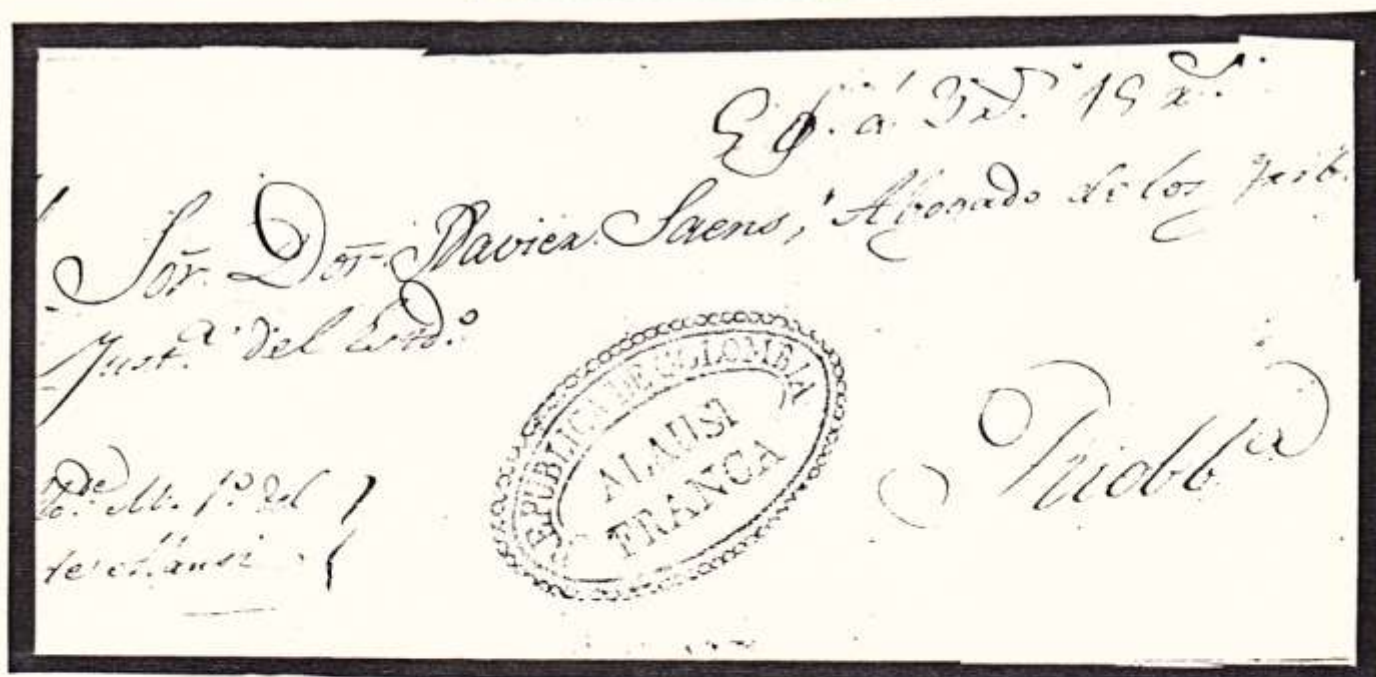 á 3
Sor. Dor. Xavier Saens, Abogado de los Trib.
Justa. del Estdo.
REPUBLICA DE COLOMBIA
ALAUSI
FRANCA
Riobba
M. 1o. del
de Alausi